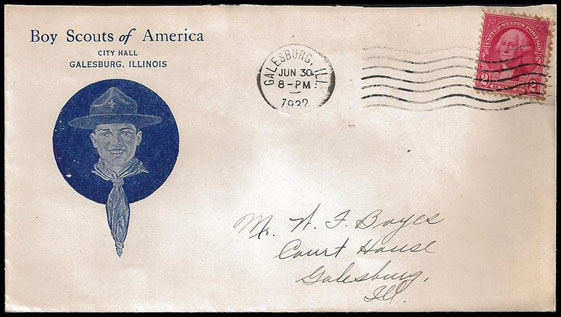 Boy Scouts of America
CITY HALL
GALESBURG, ILLINOIS
GALESBURG, ILL.
JUN 30
8-PM
1932
UNITED STATES POSTAGE
2 2
Mr. W. F. Boyes
Court House
Galesburg,
Ill.